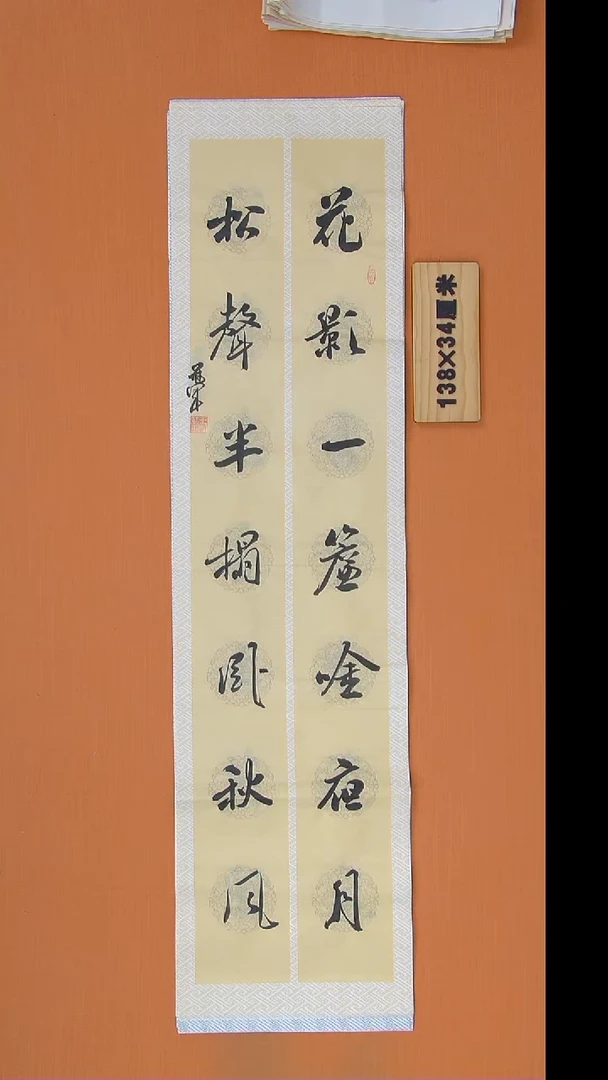 花影一簾唫夜月
松聲半榻臥秋风
138×34厘米